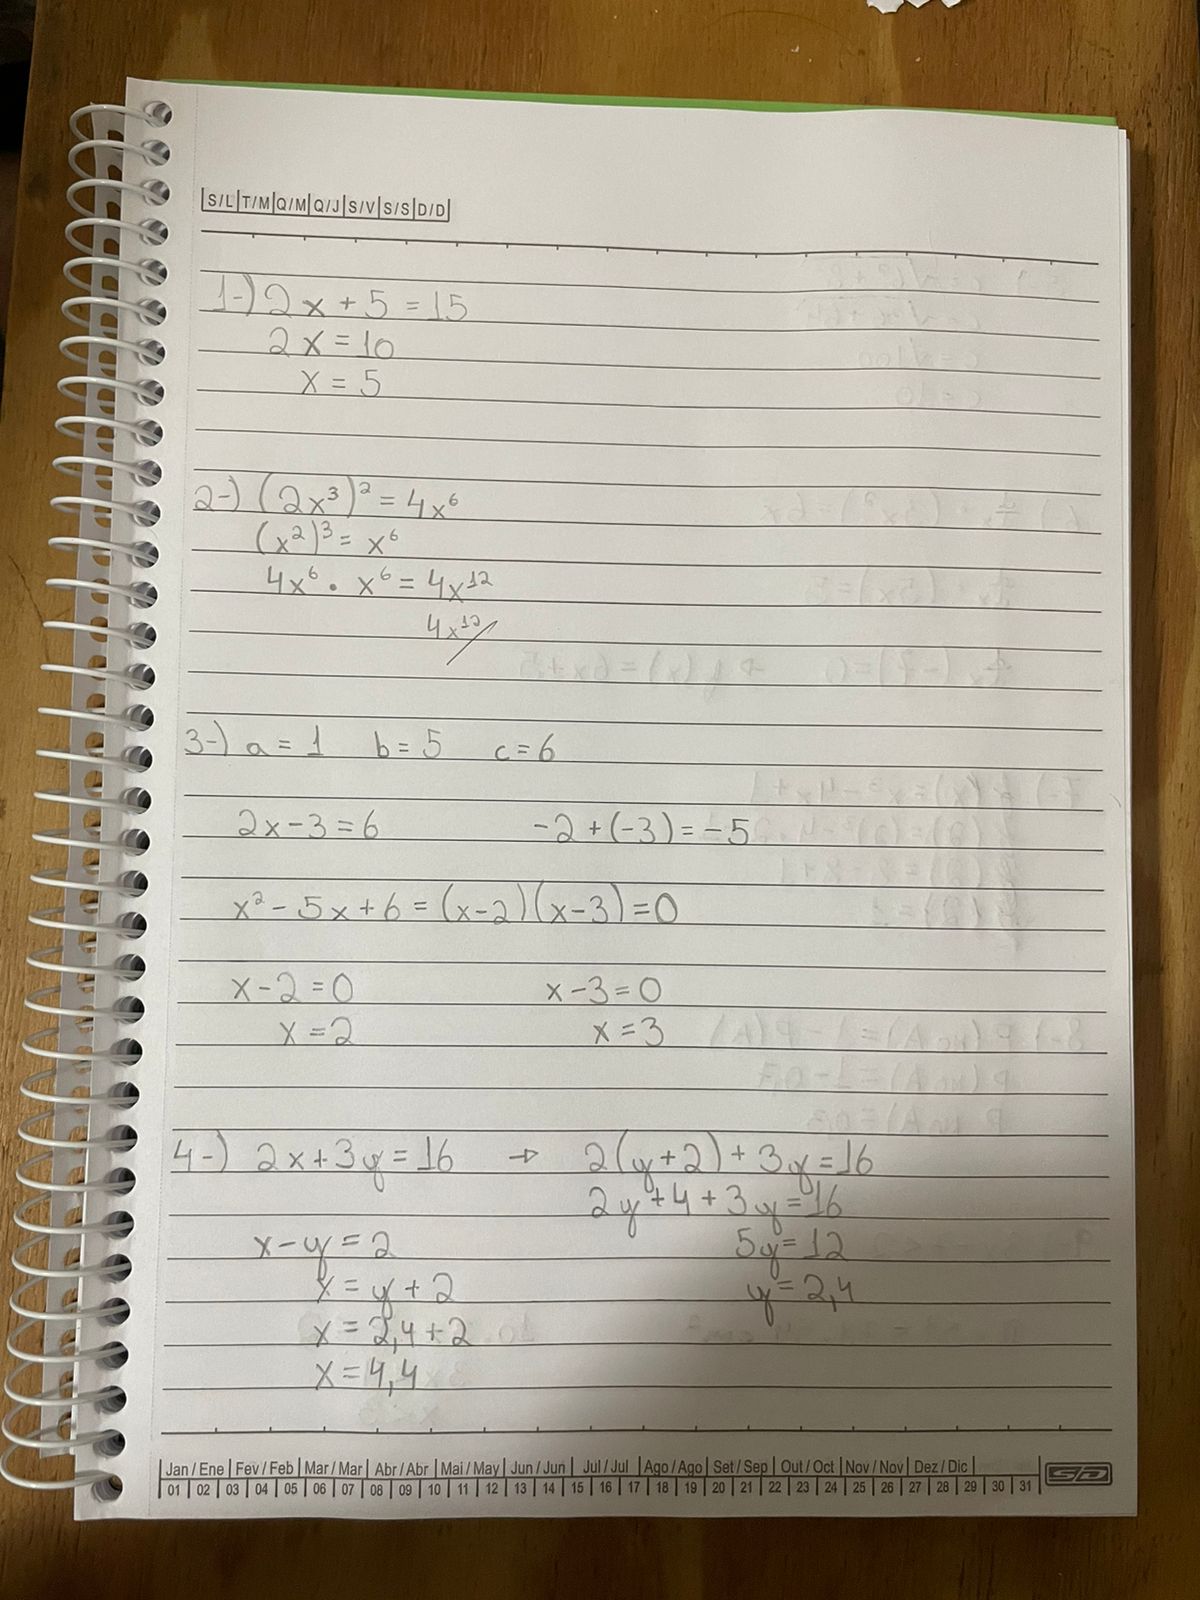 S/L T/M Q/M Q/J S/V S/S D/D
1-) 2x + 5 = 15
2x = 10
x = 5
2-) (2x³)² = 4x⁶
(x²)³ = x⁶
4x⁶ • x⁶ = 4x¹²
4x¹²
3-) a = 1 b = 5 c = 6
2x - 3 = 6 -2 + (-3) = -5
x² - 5x + 6 = (x-2)(x-3) = 0
x - 2 = 0 x - 3 = 0
x = 2 x = 3
4-) 2x + 3y = 16 → 2(y+2) + 3y = 16
2y + 4 + 3y = 16
x - y = 2 5y = 12
x = y + 2 y = 2,4
x = 2,4 + 2
x = 4,4
Jan / Ene Fev / Feb Mar / Mar Abr / Abr Mai / May Jun / Jun Jul / Jul Ago / Ago Set / Sep Out / Oct Nov / Nov Dez / Dic
01 02 03 04 05 06 07 08 09 10 11 12 13 14 15 16 17 18 19 20 21 22 23 24 25 26 27 28 29 30 31
SD